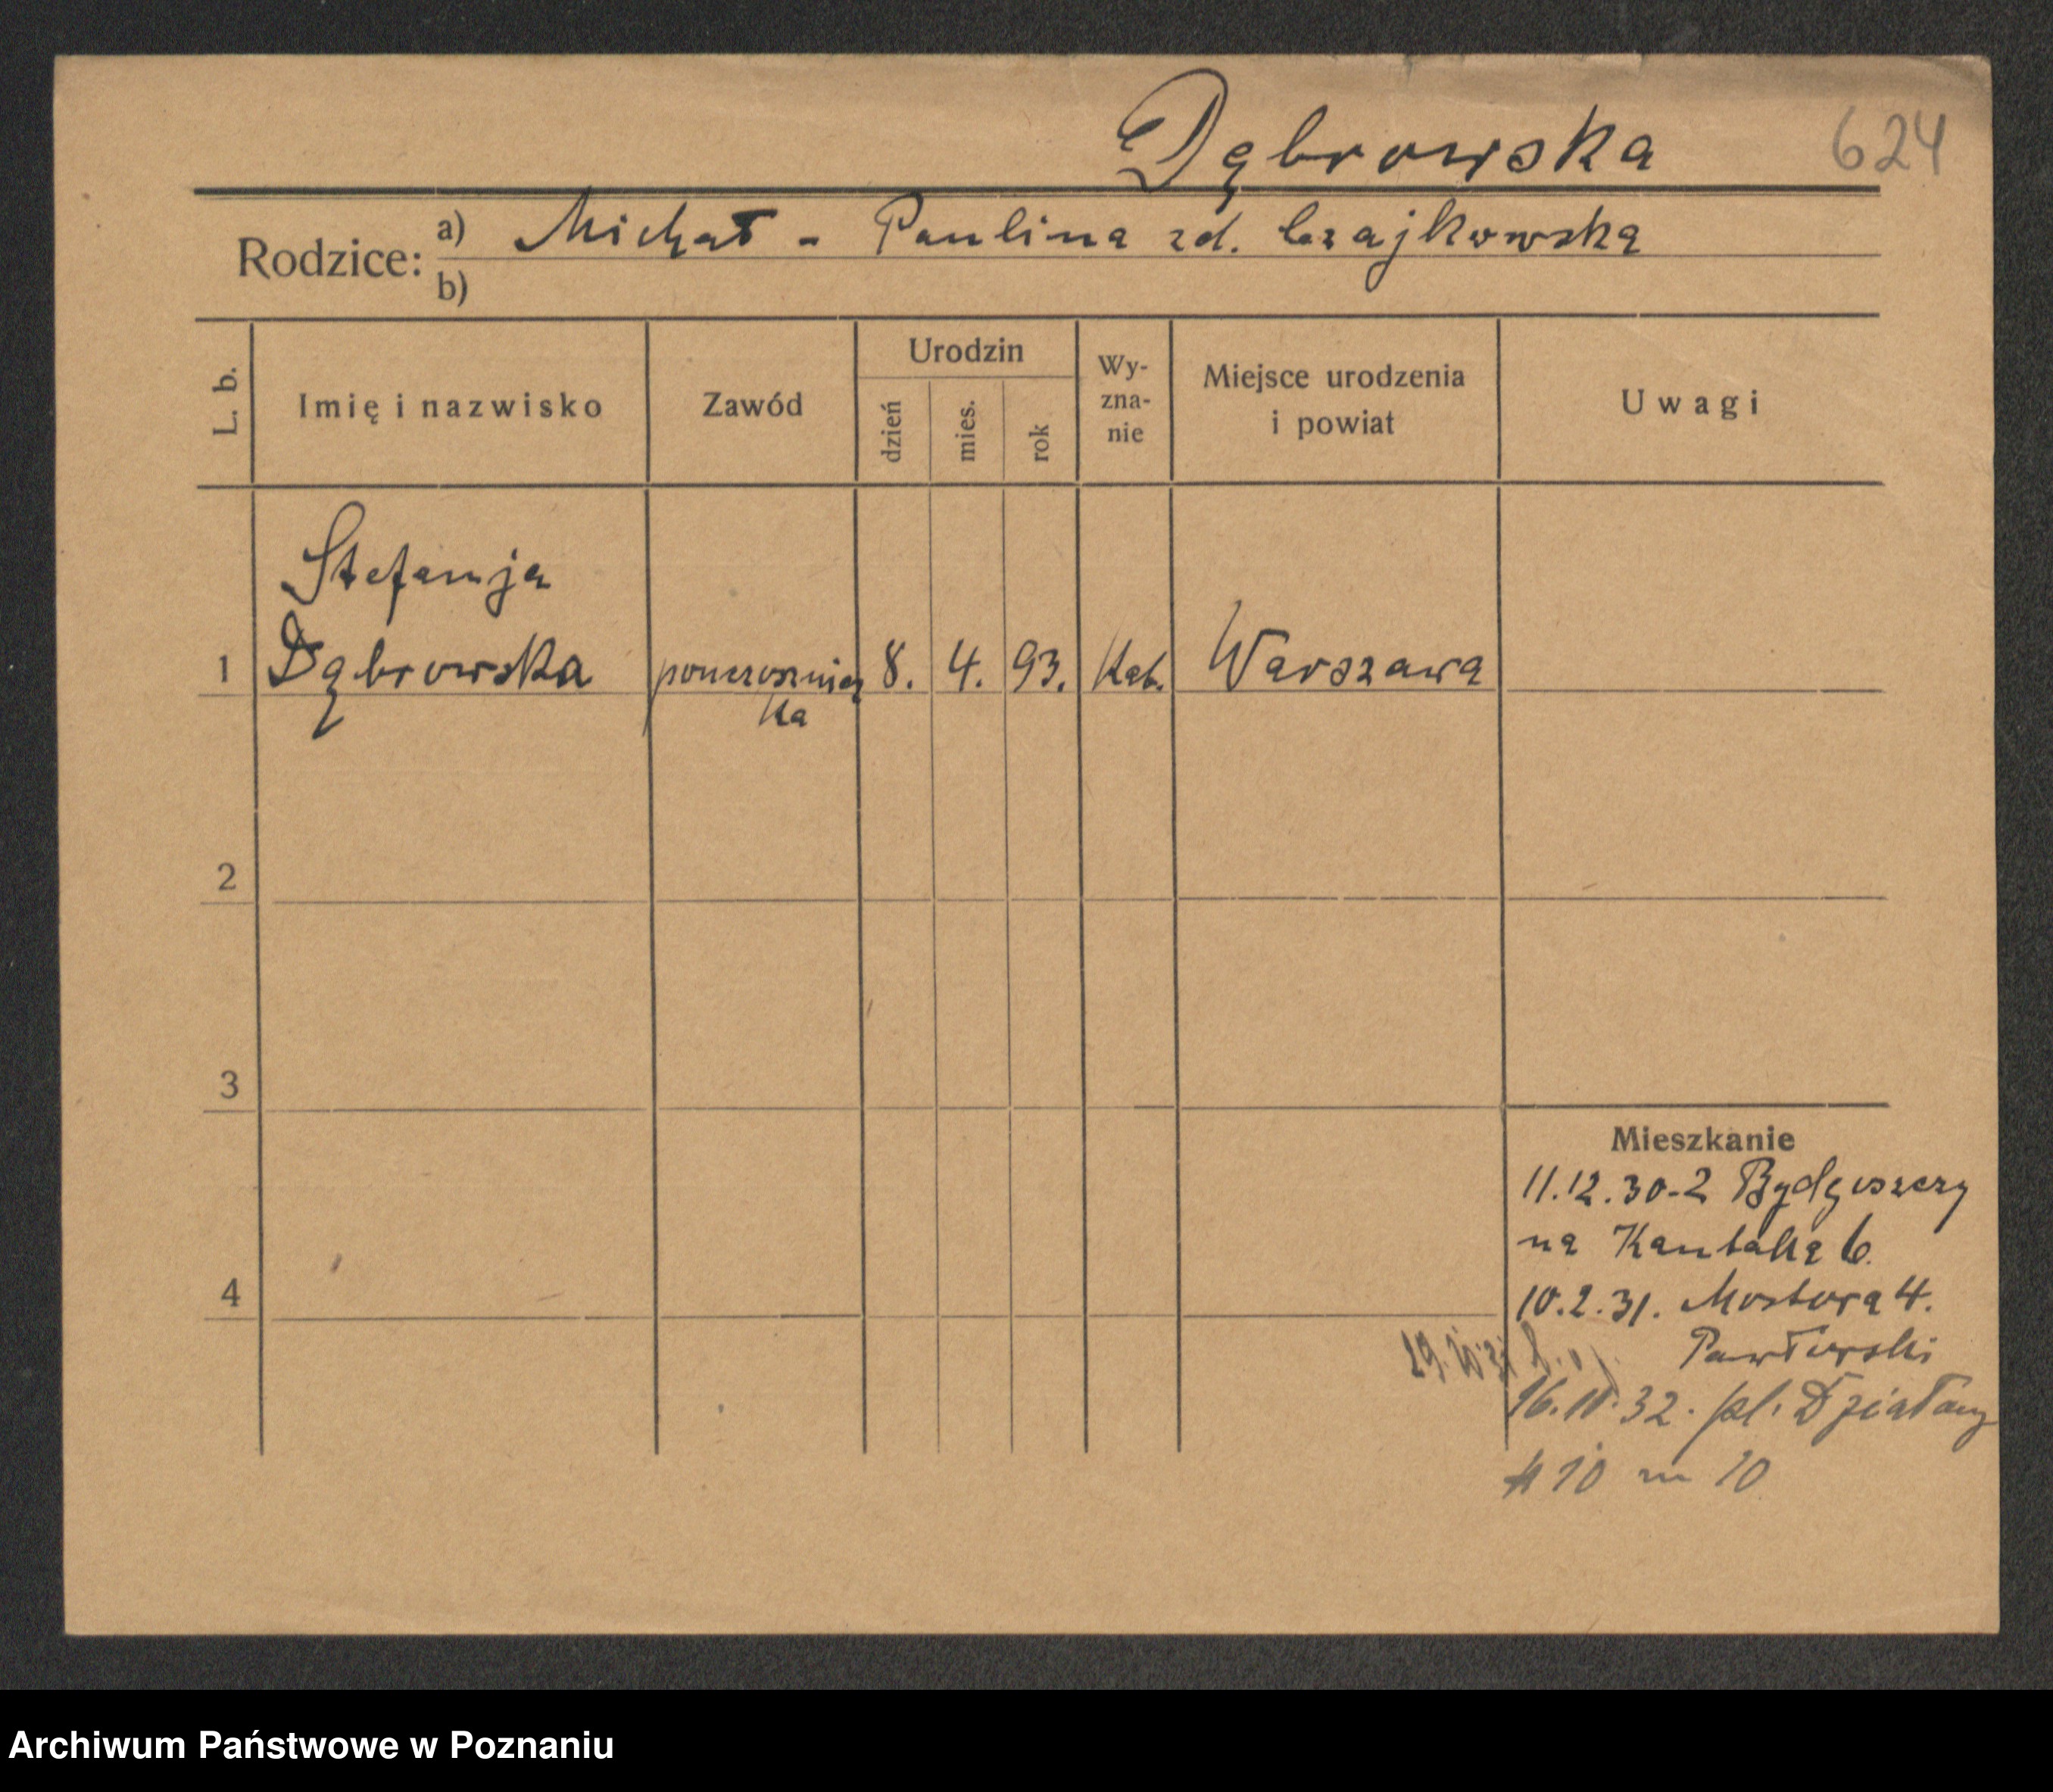 Dąbrowska 624
Rodzice: a) Michał - Paulina zd. Czajkowska
b)
L. b. Imię i nazwisko Zawód Urodzin dzień mies. rok Wy-zna-nie Miejsce urodzenia i powiat Uwagi
Stefanja
1 Dąbrowska pończosznicz 8. 4. 93. Kat. Warszawa
ka
2
3
Mieszkanie
11.12.30 - z Bydgoszczy
na Kantaka 6.
4
10.2.31. Mostowa 4.
Pawłowski
16.11.32. pl. Działowy
10 m 10
Archiwum Państwowe w Poznaniu